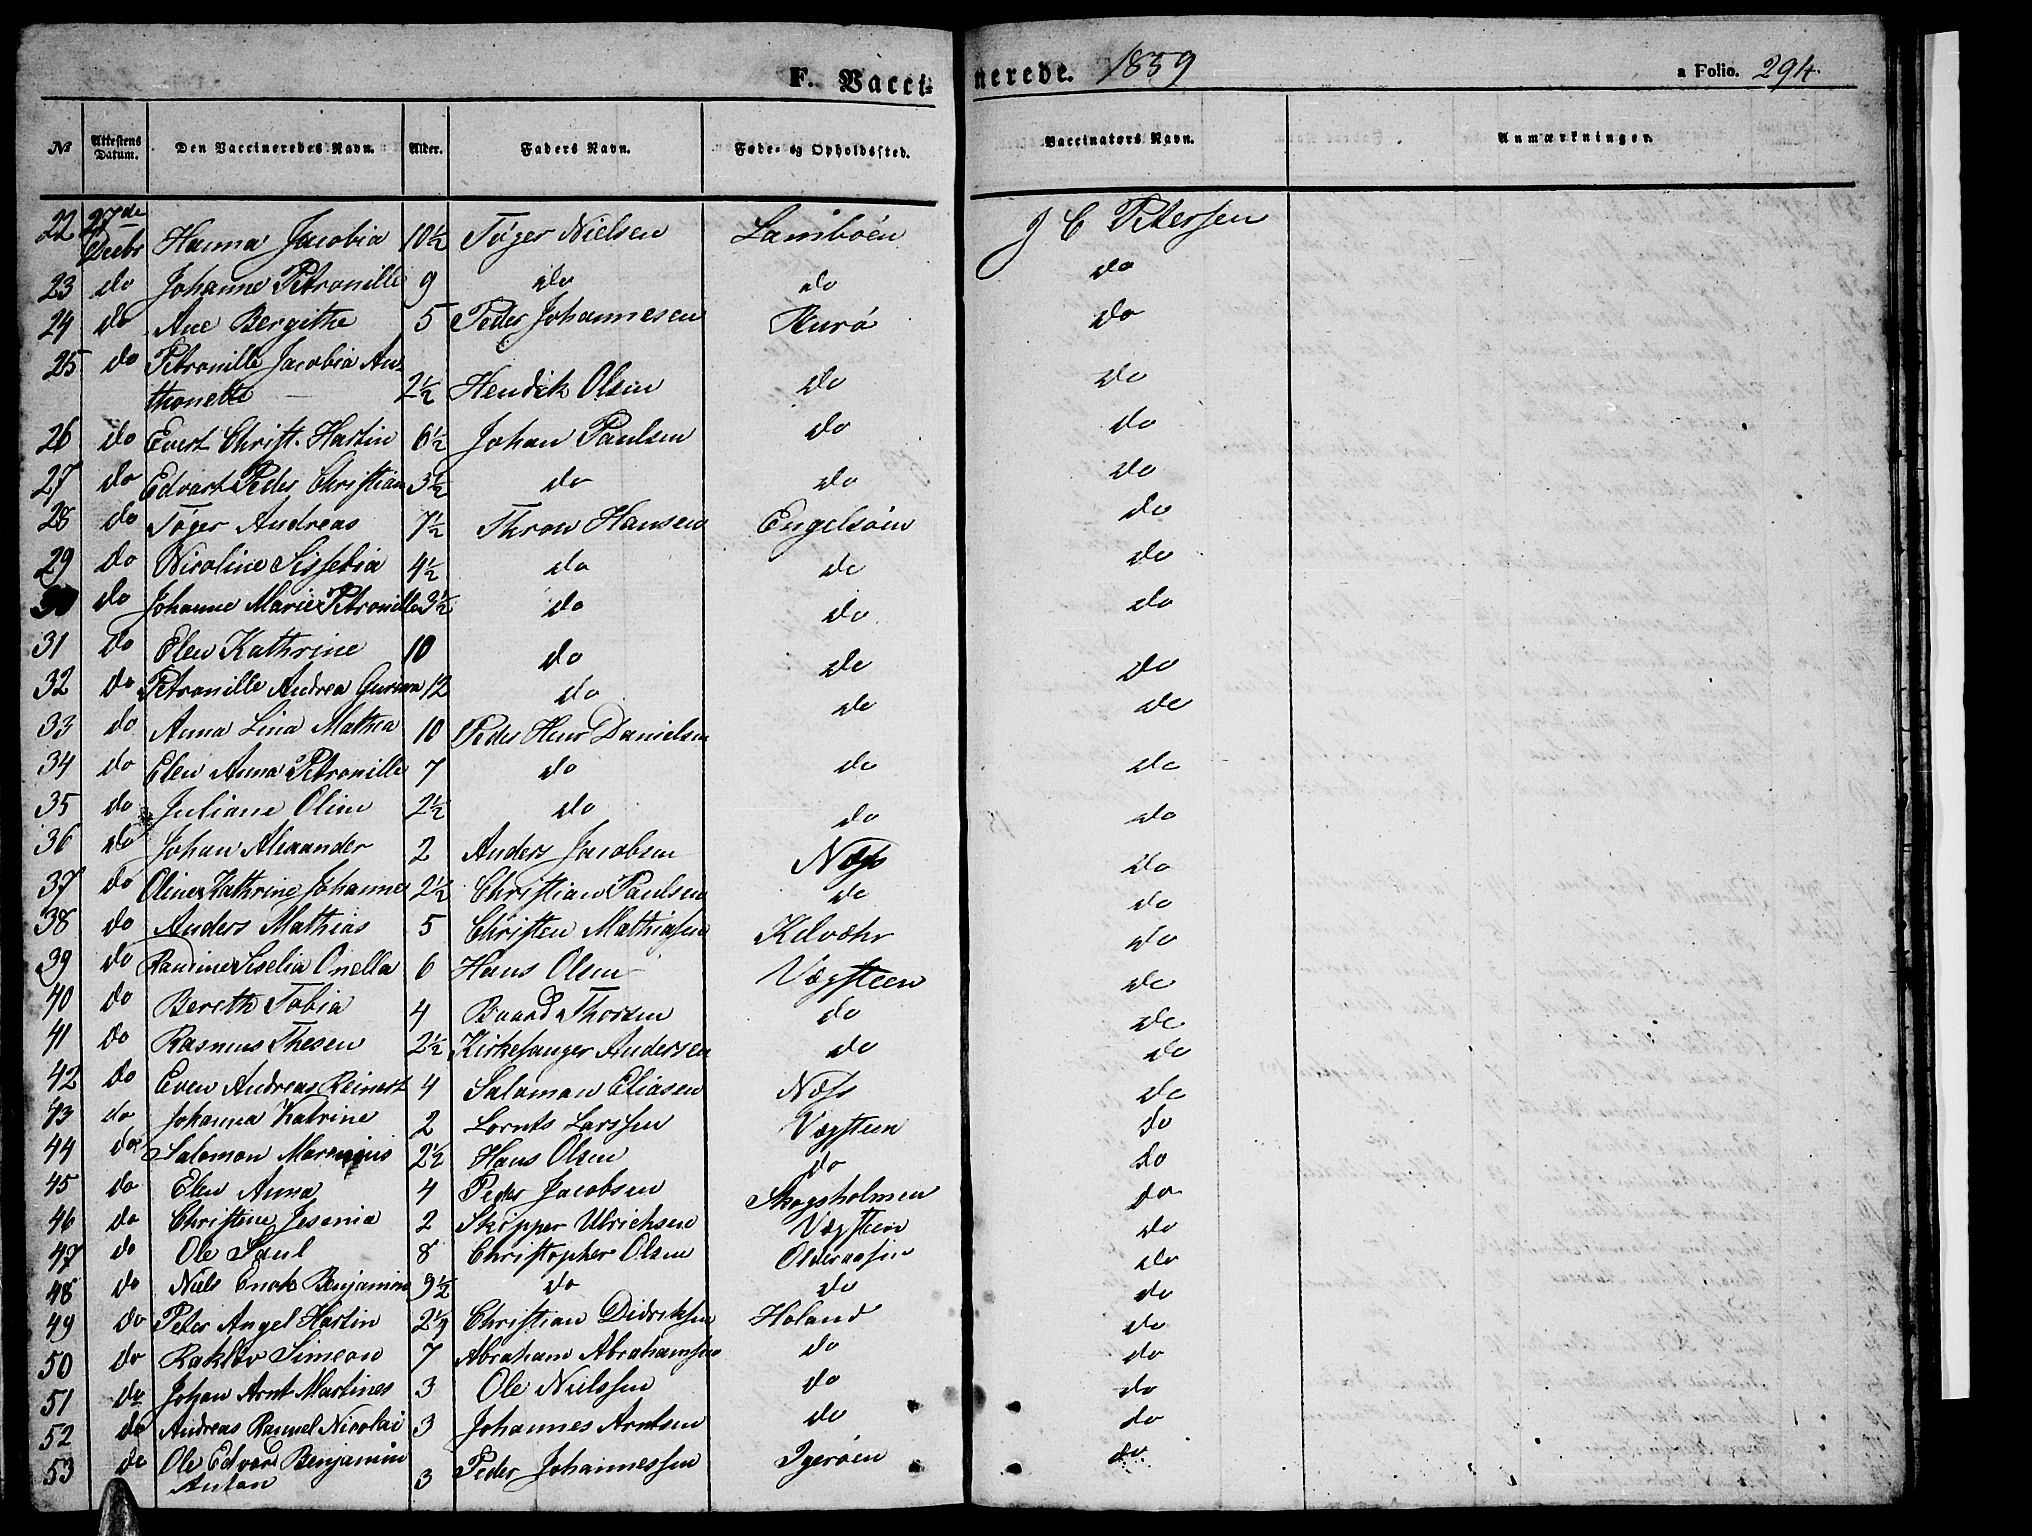 F. Vacci-nerede. 1839 a Folio. 294.
No Attestens Datum. Den Vaccineredes Navn. Alder. Faders Navn. Føde- og Opholdssted. Vaccinators Navn. Anmærkninger.
22 27de Decbr Hanna Jacobia 10½ Töger Nielsen Lamböen J C Petersen
23 do Johanne Petronille 9 do do do
24 do Ane Bergithe 5 Peder Johannesen Kurö do
25 do Petronille Jacobia An-
thonette 2½ Hendrik Olsen do do
26 do Evert Christ. Hartin 6½ Johan Paulsen do do
27 do Edvart Peder Christian 3½ do do do
28 do Töger Andreas 7½ Thron Hansen Engelsöin do
29 do Nicoline Sissebia 4½ do do do
30 do Johanne Marie Petronille 3½ do do do
31 do Elen Kathrine 10 do do do
32 do Petronille Andrea Gurina 12 do do do
33 do Anna Lina Mathea 10 Peder Henr Danielsen
34 do Elen Anna Petronille 7 do do do
35 do Juliane Oline 2½ do do do
36 do Johan Alexander 2 Anders Jacobsen Næss do
37 do Oline Kathrine Johanne 2½ Christian Paulsen do do
38 do Anders Mathias 5 Christen Mathiassen Kelvæhr do
39 do Randine Siselia Onella 6 Hans Olsen Vægsteen do
40 do Bereth Tobia 4 Baard Thorsen do do
41 do Rasmus Thesen 2½ Kirkesanger Andersen do do
42 do Even Andreas Reinert 4 Salomon Eliasen Næss do
43 do Johanna Katrine 2 Lornts Larssen Vægsteen do
44 do Salomon Marenius 2½ Hans Olsen do do
45 do Elen Anna 4 Peder Jacobsen Skogsholmen do
46 do Christine Jesenia 2 Skipper Ulrichsen Vægsteen do
47 do Ole Paul 8 Christopher Olsen Olderaasen do
48 do Niels Enok Benjamin 9½ do do do
49 do Peter Angel Hartin 2½ Christian Didriksen Holand do
50 do Rakløv Simeon 7 Abraham Abrahamsen do do
51 do Johan Arnt Martines 3 Ole Nielssen do do
52 do Andreas Rannel Nicolai 3 Johannes Arntsen do do
53 do Ole Edvard Benjamin
Anton 3 Peder Johannessen Igeröen do